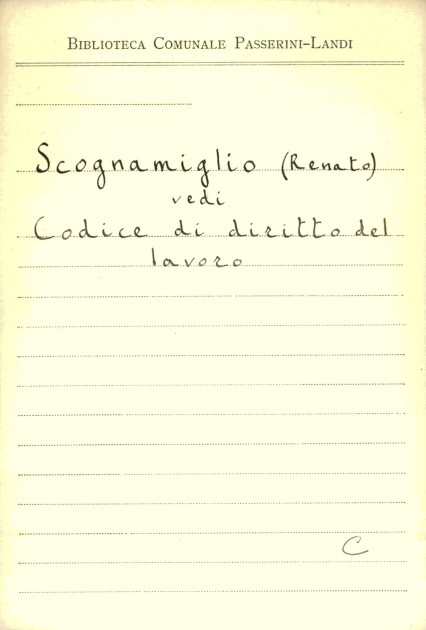 Biblioteca Comunale Passerini-Landi
Scognamiglio (Renato)
vedi
Codice di diritto del
lavoro
C